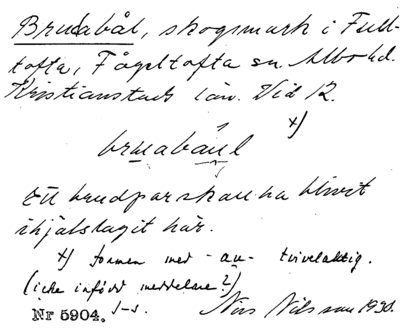 Brudabål, skogsmark i Full-
tofta, Fågeltofta sn Albo hd.
Kristianstads län. Vid 12.
x)
bruabåul
Ett brudpar skall ha blivit
ihjälslaget här.
x) formen med -au- tvivelaktig.
(icke infödd meddelare?)
Nr 5904. Nils Nilsson 1930.